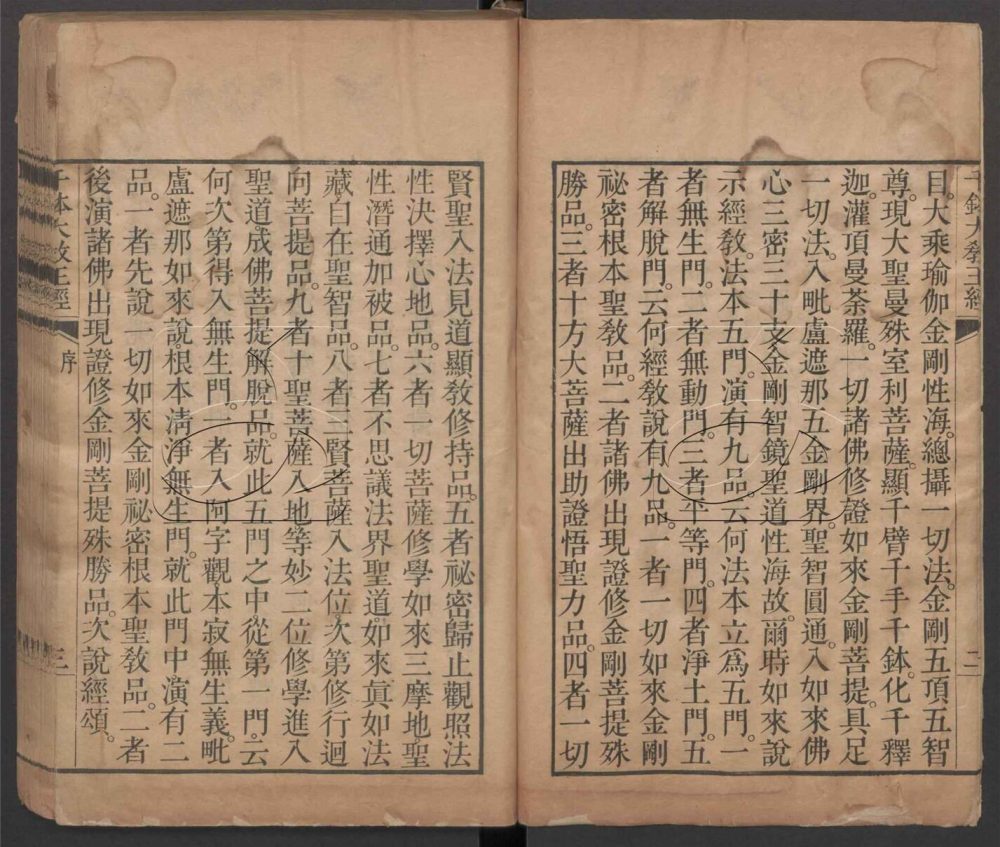 千鉢大敎王經
二
目。大乘瑜伽金剛性海。總攝一切法。金剛五頂五智
尊。現大聖曼殊室利菩薩。顯千臂千手千鉢。化千釋
迦。灌頂曼荼羅。一切諸佛修證如來金剛菩提。具足
一切法。入毗盧遮那五金剛界。聖智圓通。入如來佛
心三密三十支金剛智鏡聖道性海故。爾時如來說
示經敎。法本五門。演有九品。云何法本立爲五門。一
者無生門。二者無動門。三者平等門。四者淨土門。五
者解脫門。云何經敎說有九品。一者一切如來金剛
祕密根本聖敎品。二者諸佛出現證修金剛菩提殊
勝品。三者十方大菩薩出助證悟聖力品。四者一切
賢聖入法見道顯敎修持品。五者祕密歸止觀照法
性決擇心地品。六者一切菩薩修學如來三摩地聖
性潛通加被品。七者不思議法界聖道。如來眞如法
藏自在聖智品。八者三賢菩薩入法位次第修行迴
向菩提品。九者十聖菩薩入地等妙二位修學進入
聖道。成佛菩提解脫品。就此五門之中從第一門。云
何次第得入無生門。一者入阿字觀。本寂無生義。毗
盧遮那如來說。根本淸淨無生門。就此門中演有二
品。一者先說一切如來金剛祕密根本聖敎品。二者
後演諸佛出現證修金剛菩提殊勝品。次說經頌。
千鉢大敎王經
序
三